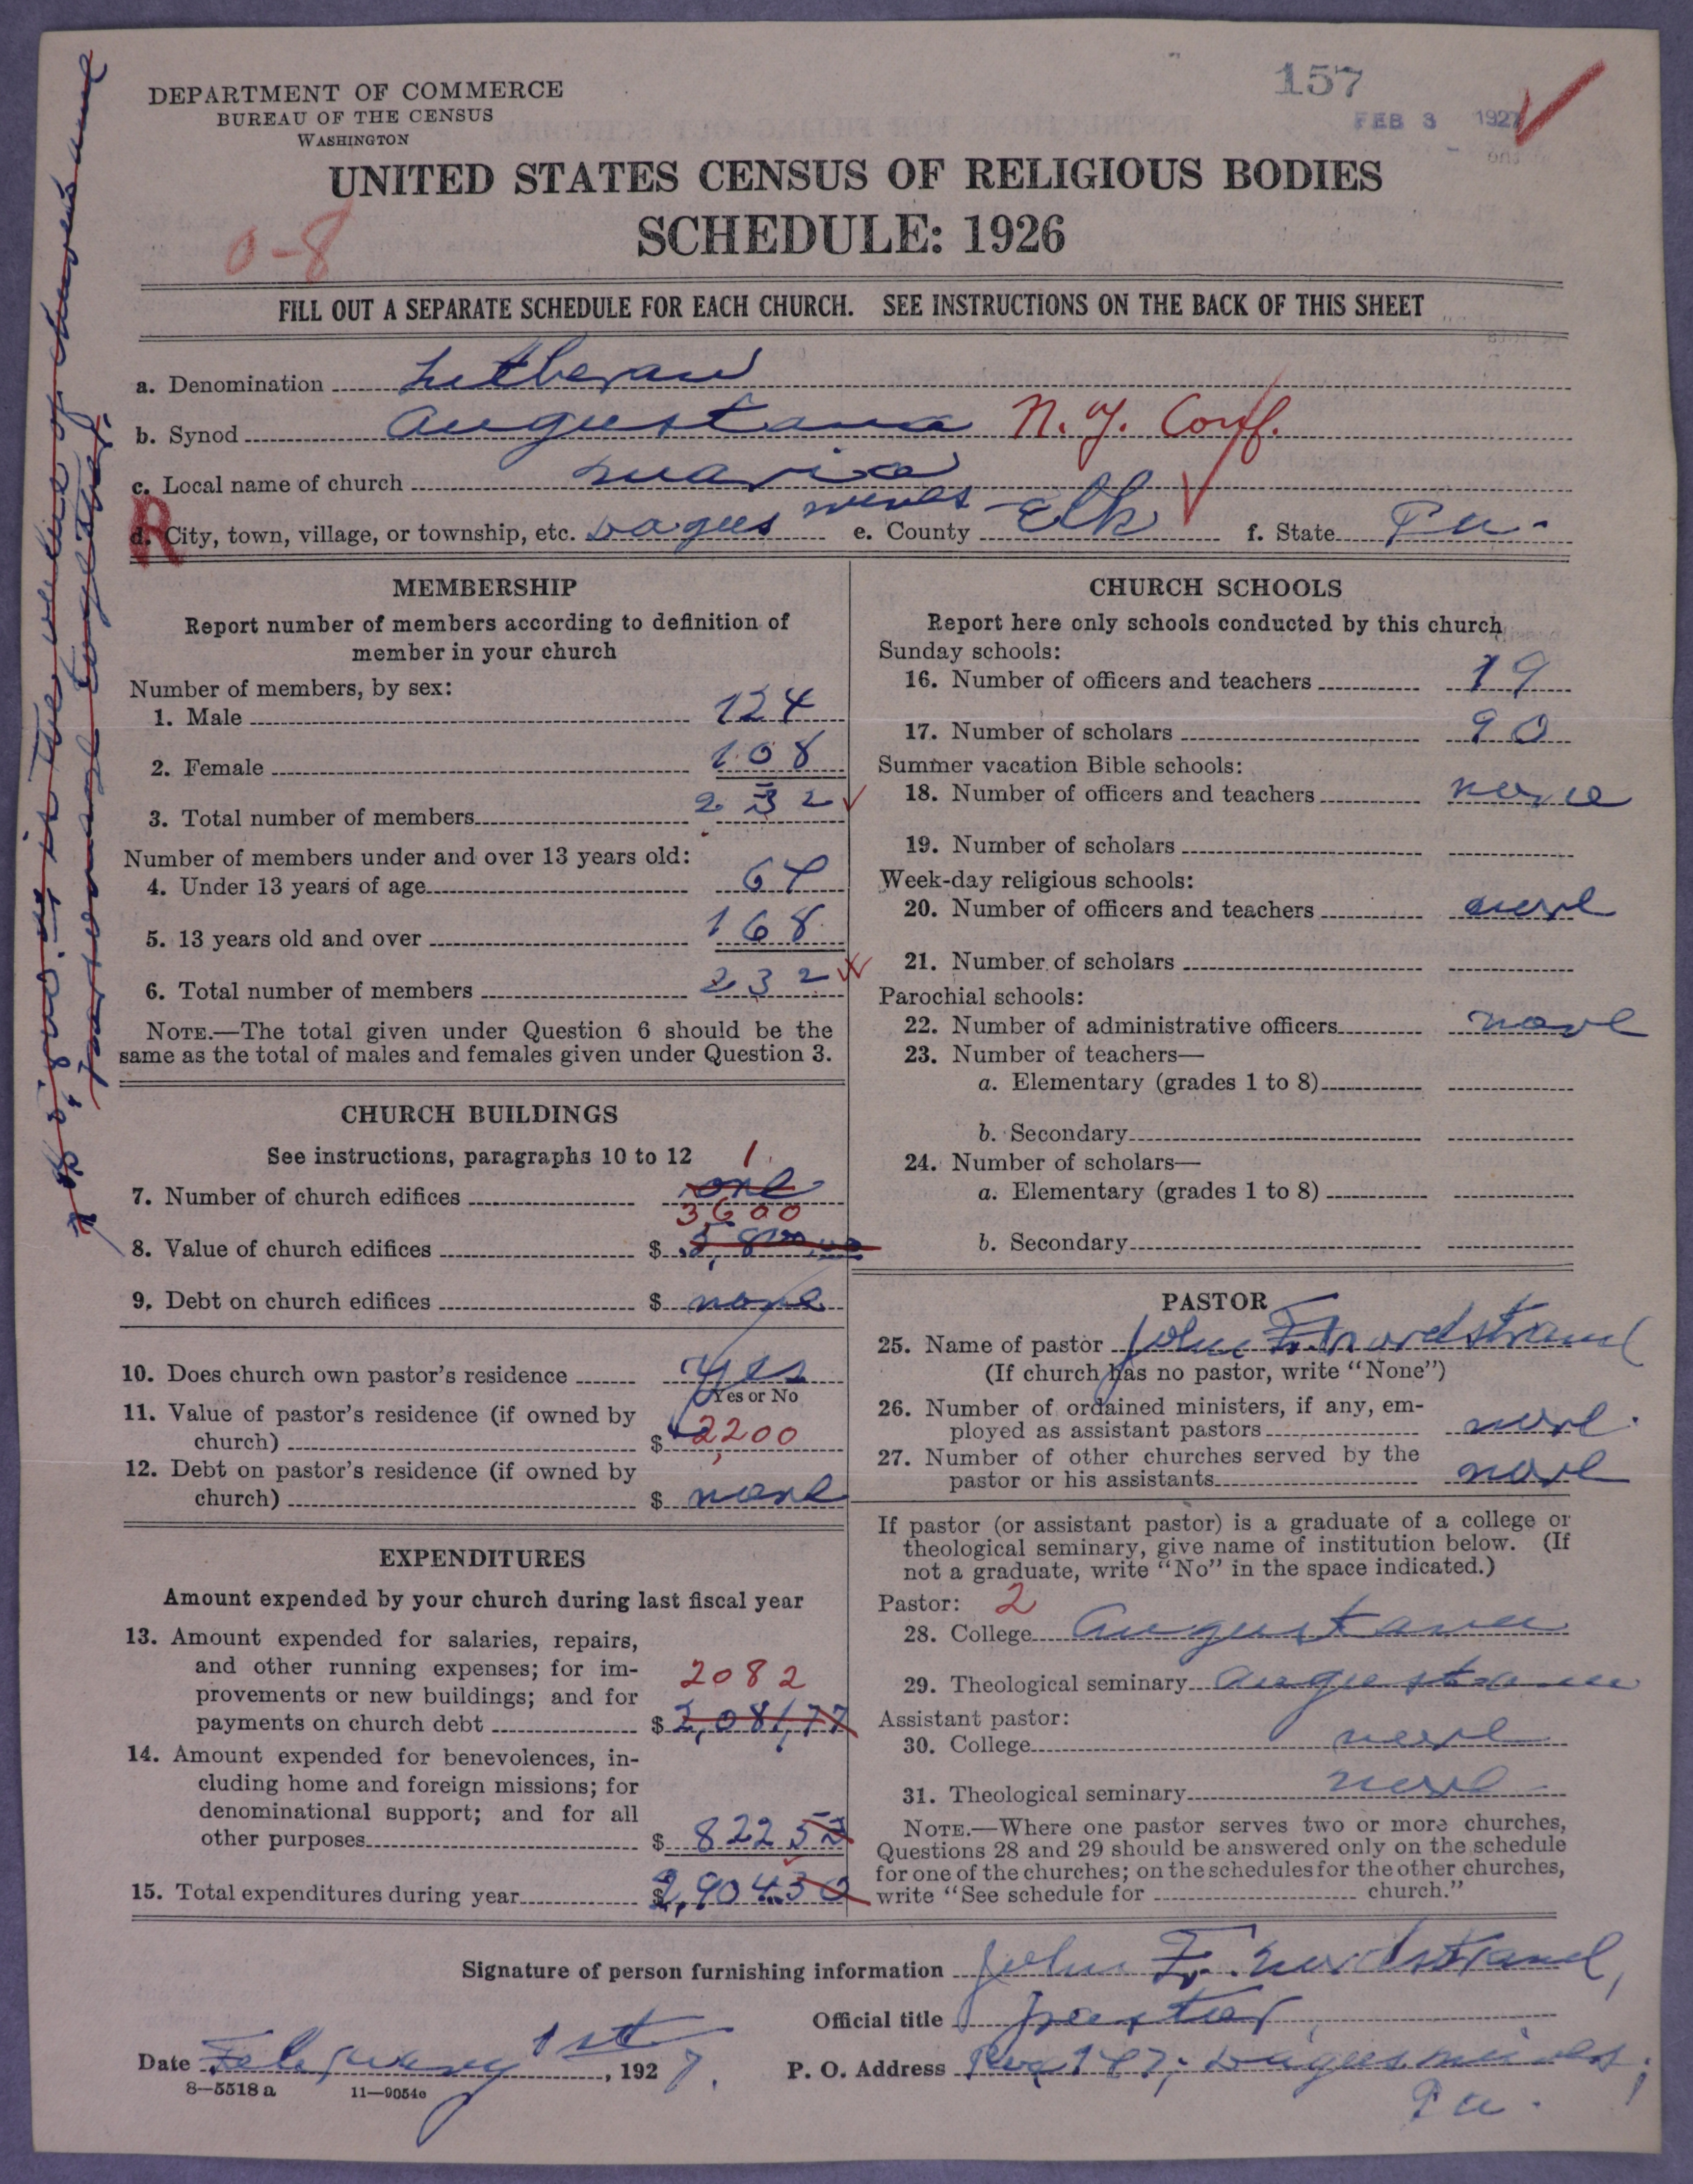 157
FEB 3 1927
DEPARTMENT OF COMMERCE
BUREAU OF THE CENSUS
WASHINGTON
UNITED STATES CENSUS OF RELIGIOUS BODIES
SCHEDULE: 1926
0-8
FILL OUT A SEPARATE SCHEDULE FOR EACH CHURCH. SEE INSTRUCTIONS ON THE BACK OF THIS SHEET
a. Denomination Lutheran
b. Synod Augustana N.Y. Conf.
c. Local name of church Maria
R
d. City, town, village, or township, etc. Dagus mines e. County Elk f. State Pa.
MEMBERSHIP
Report number of members according to definition of
member in your church
Number of members, by sex:
1. Male 124
2. Female 108
3. Total number of members 232
Number of members under and over 13 years old:
4. Under 13 years of age 64
5. 13 years old and over 168
6. Total number of members 232
NOTE.—The total given under Question 6 should be the
same as the total of males and females given under Question 3.
CHURCH BUILDINGS
See instructions, paragraphs 10 to 12
1
7. Number of church edifices one
3600
8. Value of church edifices $ 5,800.00
9. Debt on church edifices $ none
10. Does church own pastor's residence yes
Yes or No
11. Value of pastor's residence (if owned by
church) $ 2,200
12. Debt on pastor's residence (if owned by
church) $ none
EXPENDITURES
Amount expended by your church during last fiscal year
13. Amount expended for salaries, repairs,
and other running expenses; for im-
provements or new buildings; and for
payments on church debt $ 2,081,77
2082
14. Amount expended for benevolences, in-
cluding home and foreign missions; for
denominational support; and for all
other purposes $ 822 53
15. Total expenditures during year $ 2,904.30
CHURCH SCHOOLS
Report here only schools conducted by this church
Sunday schools:
16. Number of officers and teachers 19
17. Number of scholars 90
Summer vacation Bible schools:
18. Number of officers and teachers none
19. Number of scholars
Week-day religious schools:
20. Number of officers and teachers none
21. Number of scholars
Parochial schools:
22. Number of administrative officers none
23. Number of teachers—
a. Elementary (grades 1 to 8)
b. Secondary
24. Number of scholars—
a. Elementary (grades 1 to 8)
b. Secondary
PASTOR
25. Name of pastor John F. Nordstrand
(If church has no pastor, write "None")
26. Number of ordained ministers, if any, em-
ployed as assistant pastors none.
27. Number of other churches served by the
pastor or his assistants none
If pastor (or assistant pastor) is a graduate of a college or
theological seminary, give name of institution below. (If
not a graduate, write "No" in the space indicated.)
Pastor: 2
28. College Augustana
29. Theological seminary Augustana
Assistant pastor:
30. College none
31. Theological seminary none
NOTE.—Where one pastor serves two or more churches,
Questions 28 and 29 should be answered only on the schedule
for one of the churches; on the schedules for the other churches,
write "See schedule for church."
Signature of person furnishing information John F. Nordstrand,
Official title pastor,
Date February 1st, 1927.
P. O. Address Box 187, Dagus mines,
Pa.
8—5518 a 11—9054e
it is the value of church and
parsonage together.